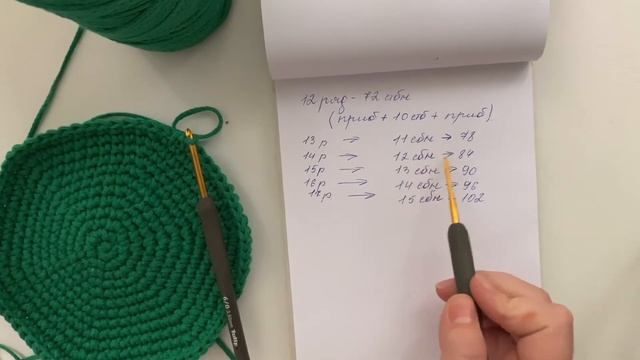 12 ряд - 72 сбн
(приб + 10 сб + приб)
13 р → 11 сбн → 78
14 р → 12 сбн → 84
15 р → 13 сбн → 90
16 р → 14 сбн → 96
17 р → 15 сбн 102
6/0